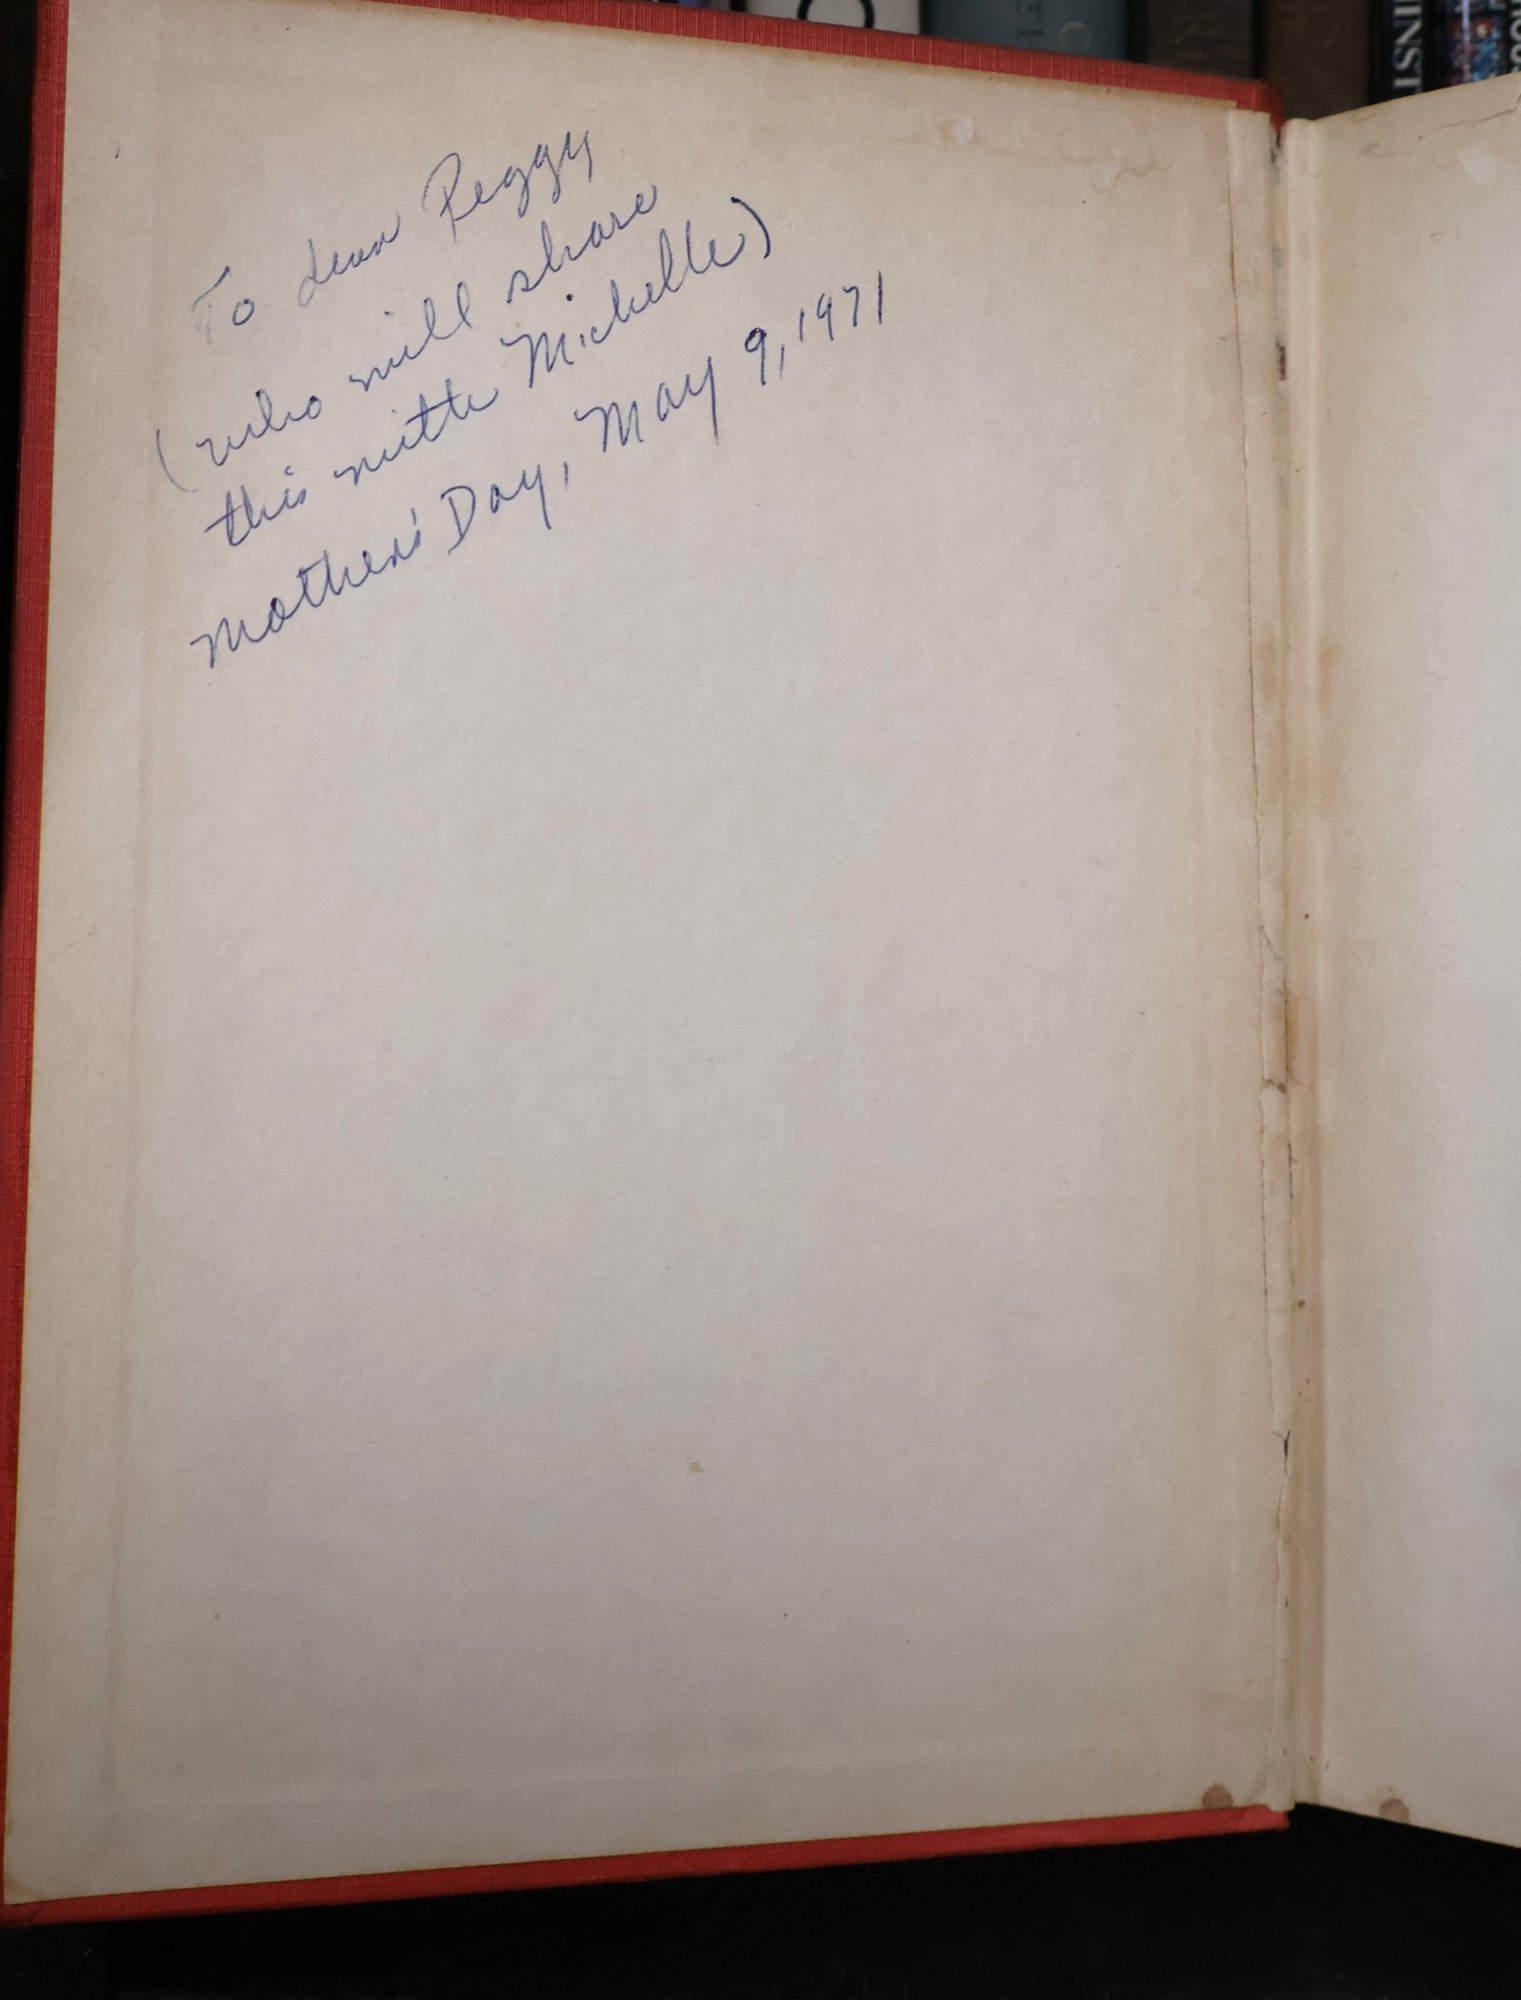 To dear Peggy
(who will share
this with Michelle)
Mother's Day, May 9, 1971
INST